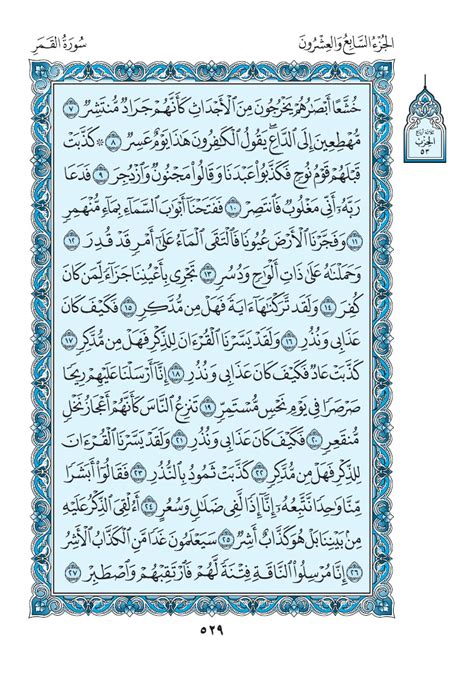 الجُزءُ السَّابِعُ وَالعِشْرُونَ
سُورَةُ القَمَرِ
خُشَّعًا أَبْصَٰرُهُمْ يَخْرُجُونَ مِنَ ٱلْأَجْدَاثِ كَأَنَّهُمْ جَرَادٌ مُّنتَشِرٌ ٧
مُّهْطِعِينَ إِلَى ٱلدَّاعِ ۖ يَقُولُ ٱلْكَٰفِرُونَ هَٰذَا يَوْمٌ عَسِرٌ ٨ ۞ كَذَّبَتْ
قَبْلَهُمْ قَوْمُ نُوحٍ فَكَذَّبُوا۟ عَبْدَنَا وَقَالُوا۟ مَجْنُونٌ وَٱزْدُجِرَ ٩ فَدَعَا
رَبَّهُۥٓ أَنِّى مَغْلُوبٌ فَٱنتَصِرْ ١٠ فَفَتَحْنَآ أَبْوَٰبَ ٱلسَّمَآءِ بِمَآءٍ مُّنْهَمِرٍ
١١ وَفَجَّرْنَا ٱلْأَرْضَ عُيُونًا فَٱلْتَقَى ٱلْمَآءُ عَلَىٰٓ أَمْرٍ قَدْ قُدِرَ ١٢
وَحَمَلْنَٰهُ عَلَىٰ ذَاتِ أَلْوَٰحٍ وَدُسُرٍ ١٣ تَجْرِى بِأَعْيُنِنَا جَزَآءً لِّمَن كَانَ
كُفِرَ ١٤ وَلَقَد تَّرَكْنَٰهَآ ءَايَةً فَهَلْ مِن مُّدَّكِرٍ ١٥ فَكَيْفَ كَانَ
عَذَابِى وَنُذُرِ ١٦ وَلَقَدْ يَسَّرْنَا ٱلْقُرْءَانَ لِلذِّكْرِ فَهَلْ مِن مُّدَّكِرٍ ١٧
كَذَّبَتْ عَادٌ فَكَيْفَ كَانَ عَذَابِى وَنُذُرِ ١٨ إِنَّآ أَرْسَلْنَا عَلَيْهِمْ رِيحًا
صَرْصَرًا فِى يَوْمِ نَحْسٍ مُّسْتَمِرٍّ ١٩ تَنزِعُ ٱلنَّاسَ كَأَنَّهُمْ أَعْجَازُ نَخْلٍ
مُّنقَعِرٍ ٢٠ فَكَيْفَ كَانَ عَذَابِى وَنُذُرِ ٢١ وَلَقَدْ يَسَّرْنَا ٱلْقُرْءَانَ
لِلذِّكْرِ فَهَلْ مِن مُّدَّكِرٍ ٢٢ كَذَّبَتْ ثَمُودُ بِٱلنُّذُرِ ٢٣ فَقَالُوٓا۟ أَبَشَرًا
مِّنَّا وَٰحِدًا نَّتَّبِعُهُۥٓ إِنَّآ إِذًا لَّفِى ضَلَٰلٍ وَسُعُرٍ ٢٤ أَءُلْقِىَ ٱلذِّكْرُ عَلَيْهِ
مِنۢ بَيْنِنَا بَلْ هُوَ كَذَّابٌ أَشِرٌ ٢٥ سَيَعْلَمُونَ غَدًا مَّنِ ٱلْكَذَّابُ ٱلْأَشِرُ
٢٦ إِنَّا مُرْسِلُوا۟ ٱلنَّاقَةِ فِتْنَةً لَّهُمْ فَٱرْتَقِبْهُمْ وَٱصْطَبِرْ ٢٧
الحِزْبُ
٥٣
٥٢٩